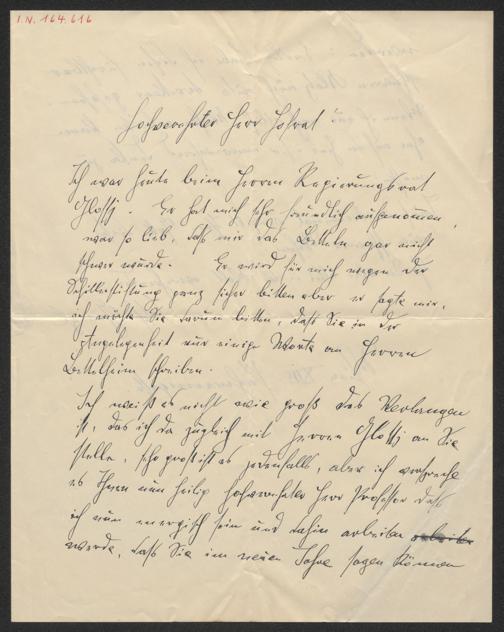 I.N. 164.616
Hochverehrter Herr Hofrat
Ich war heute beim Herrn Regierungsrat
Glossy. Er hat mich sehr freundlich aufgenommen,
war so lieb, daß mir das Betteln gar nicht
schwer wurde. Er wird für mich wegen der
Schillerstiftung ganz sicher bitten aber er sagte mir,
ich möchte Sie darum bitten, daß Sie in der
Angelegenheit nur einige Worte an Herrn
Bettelheim schreiben.
Ich weiß es nicht wie groß das Verlangen
ist, das ich da zugleich mit Herrn Glossy an Sie
stelle, sehr groß ist es jedenfalls, aber ich verspreche
es Ihnen nun heilig hochverehrter Herr Professor daß
ich nun energisch sein und dahin arbeiten
werde, daß Sie im neuen Jahre sagen können